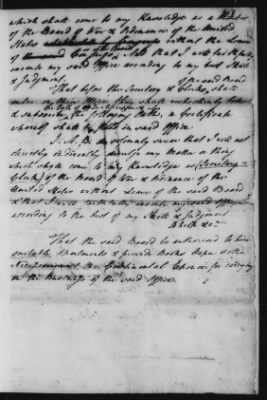 which shall come to my Knowledge as a
of the Board of War & Ordnance of the United
States without the Leave
of the said Board & that I will faithfully
execute my said Office according to my best Skill
& Judgment.
That before the Secretary & Clerks, shall
enter on their Office they shall respectively take
& subscribe the following Oaths, a Certificate
whereof shall be filed in said Office
I. A. B. do solemnly swear that I will not
directly or indirectly divulge any Matter or Thing
which shall come to my Knowledge as (Secretary or
Clerk) of the Board of War & Ordnance of the
United States without Leave of the said Board
& that I will faithfully execute my said Office
according to the best of my Skill & Judgment
That the said Board be authorised to hire
suitable Apartments & provide Books Paper & other
Continental Expence for carrying
on the Business of the said Office.